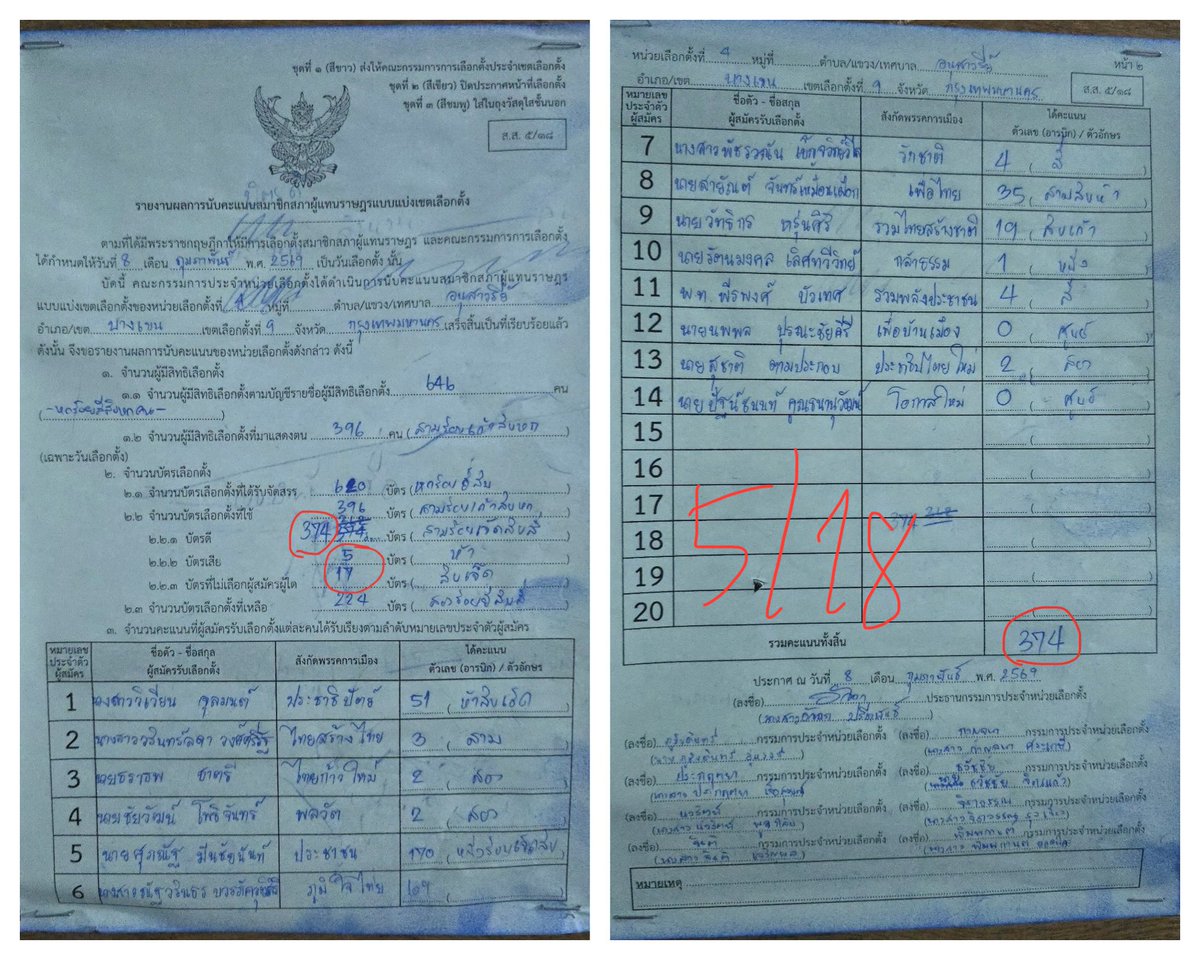 ชุดที่ ๑ (สีขาว) ส่งให้คณะกรรมการการเลือกตั้งประจำเขตเลือกตั้ง
ชุดที่ ๒ (สีเขียว) ปิดประกาศหน้าที่เลือกตั้ง
ชุดที่ ๓ (สีชมพู) ใส่ในถุงวัสดุใสชั้นนอก
ส.ส. ๕/๑๘
รายงานผลการนับคะแนนสมาชิกสภาผู้แทนราษฎรแบบแบ่งเขตเลือกตั้ง
ตามที่ได้มีพระราชกฤษฎีกาให้มีการเลือกตั้งสมาชิกสภาผู้แทนราษฎร และคณะกรรมการการเลือกตั้ง
ได้กำหนดให้วันที่ 8 เดือน กุมภาพันธ์ พ.ศ. 2569 เป็นวันเลือกตั้ง นั้น
บัดนี้ คณะกรรมการประจำหน่วยเลือกตั้งได้ดำเนินการนับคะแนนสมาชิกสภาผู้แทนราษฎร
แบบแบ่งเขตเลือกตั้งของหน่วยเลือกตั้งที่ หมู่ที่ ตำบล/แขวง/เทศบาล อนุสาวรีย์
อำเภอ/เขต บางเขน เขตเลือกตั้งที่ 9 จังหวัด กรุงเทพมหานคร เสร็จสิ้นเป็นที่เรียบร้อยแล้ว
ดังนั้น จึงขอรายงานผลการนับคะแนนของหน่วยเลือกตั้งดังกล่าว ดังนี้
๑. จำนวนผู้มีสิทธิเลือกตั้ง
๑.๑ จำนวนผู้มีสิทธิเลือกตั้งตามบัญชีรายชื่อผู้มีสิทธิเลือกตั้ง 646 คน
(-หกร้อยสี่สิบหกคน-)
๑.๒ จำนวนผู้มีสิทธิเลือกตั้งที่มาแสดงตน 396 คน (สามร้อยเก้าสิบหก)
(เฉพาะวันเลือกตั้ง)
๒. จำนวนบัตรเลือกตั้ง
๒.๑ จำนวนบัตรเลือกตั้งที่ได้รับจัดสรร 620 บัตร (หกร้อยยี่สิบ)
๒.๒ จำนวนบัตรเลือกตั้งที่ใช้ 396 บัตร (สามร้อยเก้าสิบหก)
๒.๒.๑ บัตรดี 374 บัตร (สามร้อยเจ็ดสิบสี่)
๒.๒.๒ บัตรเสีย 5 บัตร (ห้า)
๒.๒.๓ บัตรที่ไม่เลือกผู้สมัครผู้ใด 17 บัตร (สิบเจ็ด)
๒.๓ จำนวนบัตรเลือกตั้งที่เหลือ 224 บัตร (สองร้อยยี่สิบสี่)
๓. จำนวนคะแนนที่ผู้สมัครรับเลือกตั้งแต่ละคนได้รับเรียงตามลำดับหมายเลขประจำตัวผู้สมัคร
หมายเลขประจำตัวผู้สมัคร ชื่อตัว - ชื่อสกุล ผู้สมัครรับเลือกตั้ง สังกัดพรรคการเมือง ได้คะแนน ตัวเลข (อารบิก) / ตัวอักษร
1 นางสาววิเวียน จุลมนต์ ประชาธิปัตย์ 51 (ห้าสิบเอ็ด)
2 ไทยสร้างไทย 3 (สาม)
3 นายธราอพ ชาตรี ไทยก้าวใหม่ 2 (สอง)
4 นายชัยวัฒน์ โพธิจันทร์ พลวัต 2 (สอง)
5 นายศุภณัฐ มีนชัยนันท์ ประชาชน 170 (หนึ่งร้อยเจ็ดสิบ)
6 ภูมิใจไทย
หน่วยเลือกตั้งที่ หมู่ที่ ตำบล/แขวง/เทศบาล อนุสาวรีย์ หน้า ๒
อำเภอ/เขต บางเขน เขตเลือกตั้งที่ 9 จังหวัด กรุงเทพมหานคร
ส.ส. ๕/๑๘
หมายเลขประจำตัวผู้สมัคร ชื่อตัว - ชื่อสกุล ผู้สมัครรับเลือกตั้ง สังกัดพรรคการเมือง ได้คะแนน ตัวเลข (อารบิก) / ตัวอักษร
7 รักชาติ 4 (สี่)
8 นายสายัณต์ จันทร์เหมือนเผือก เพื่อไทย 35 (สามสิบห้า)
9 นายวัทธิกร หรุ่นศิริ รวมไทยสร้างชาติ 19 (สิบเก้า)
10 นายรัตนมงคล เลิศทวีวิทย์ กล้าธรรม 1 (หนึ่ง)
11 พ.ท. พีรพงศ์ บัวเทศ รวมพลังประชาชน 4 (สี่)
12 นายนพพล ปุรณะชัยคีรี เพื่อบ้านเมือง 0 (ศูนย์)
13 นายสุชาติ ตามประกอบ ประชาธิปไตยใหม่ 2 (สอง)
14 โอกาสใหม่ 0 (ศูนย์)
15
16
17
18
19
20
5/18
รวมคะแนนทั้งสิ้น 374
ประกาศ ณ วันที่ 8 เดือน กุมภาพันธ์ พ.ศ. 2569
(ลงชื่อ) ประธานกรรมการประจำหน่วยเลือกตั้ง
(ลงชื่อ) กรรมการประจำหน่วยเลือกตั้ง (ลงชื่อ) กาญจนา กรรมการประจำหน่วยเลือกตั้ง
(ลงชื่อ) กรรมการประจำหน่วยเลือกตั้ง (ลงชื่อ) ธวัชชัย กรรมการประจำหน่วยเลือกตั้ง
(ลงชื่อ) กรรมการประจำหน่วยเลือกตั้ง (ลงชื่อ) กรรมการประจำหน่วยเลือกตั้ง
(ลงชื่อ) กรรมการประจำหน่วยเลือกตั้ง (ลงชื่อ) กรรมการประจำหน่วยเลือกตั้ง
หมายเหตุ